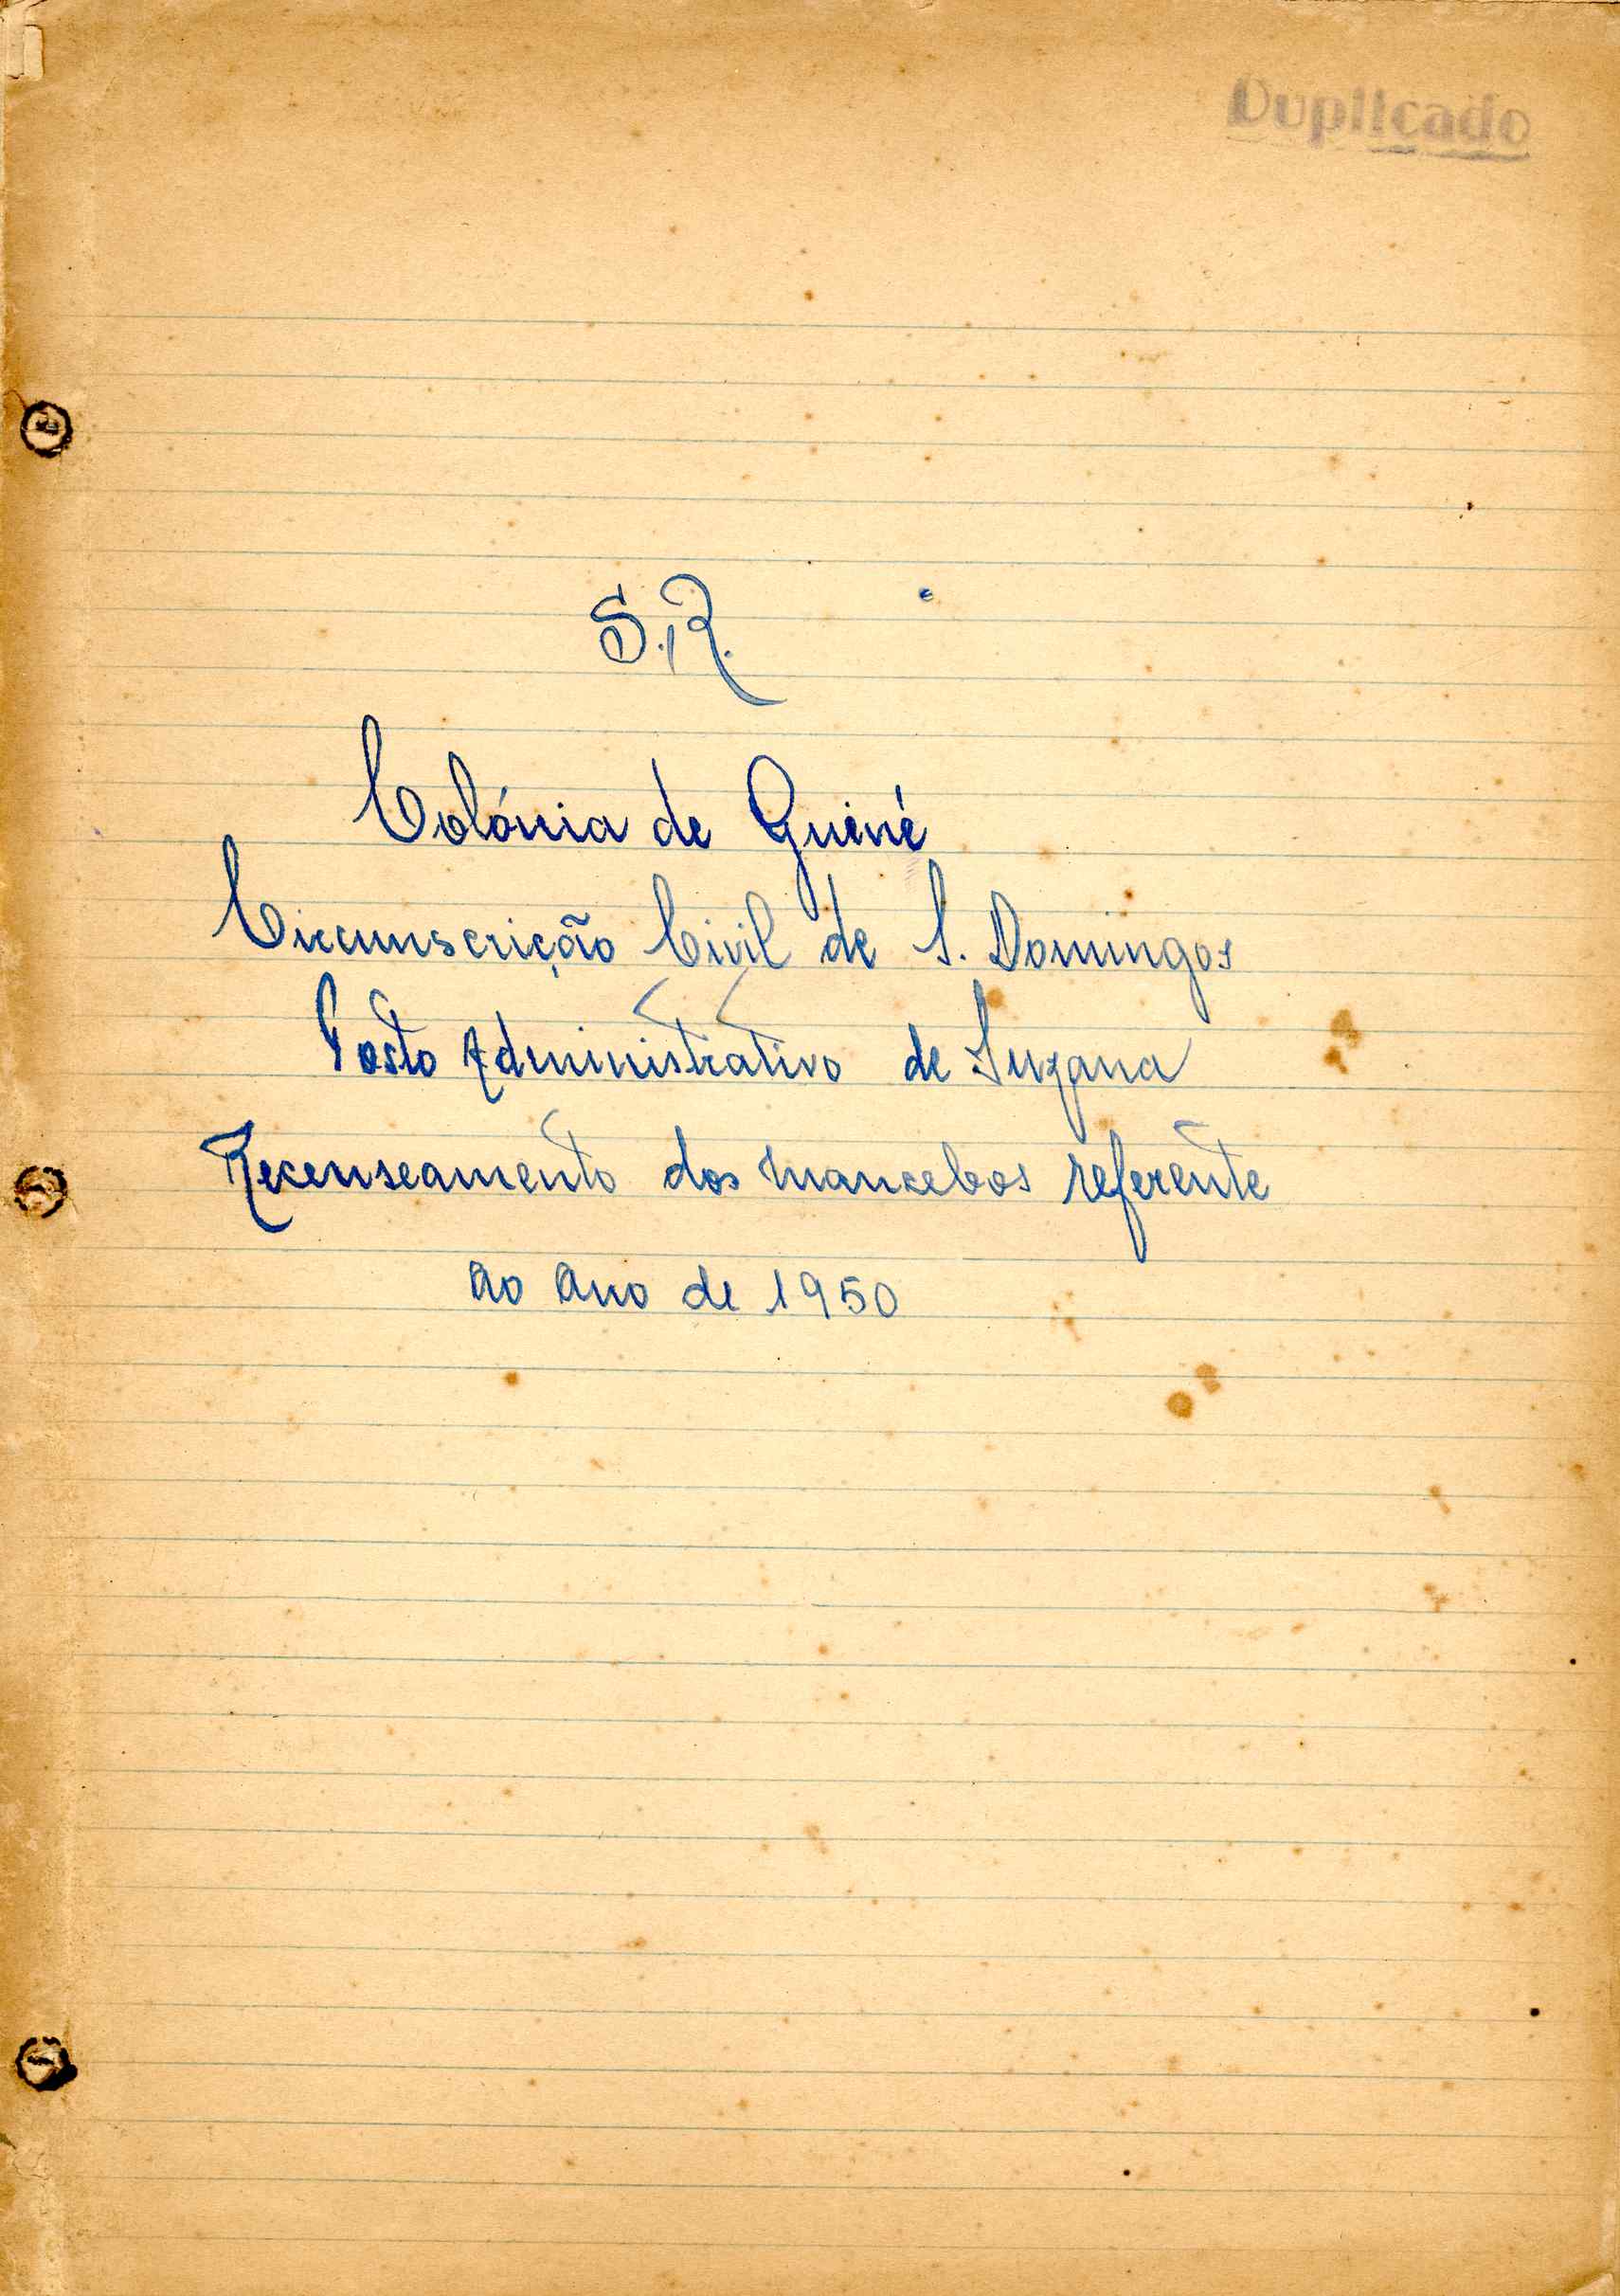 Duplicado
S.R.
Colónia de Guiné
Circunscrição Civil de S. Domingos
Posto Administrativo de Suzana
Recenseamento dos mancebos referente
ao ano de 1950